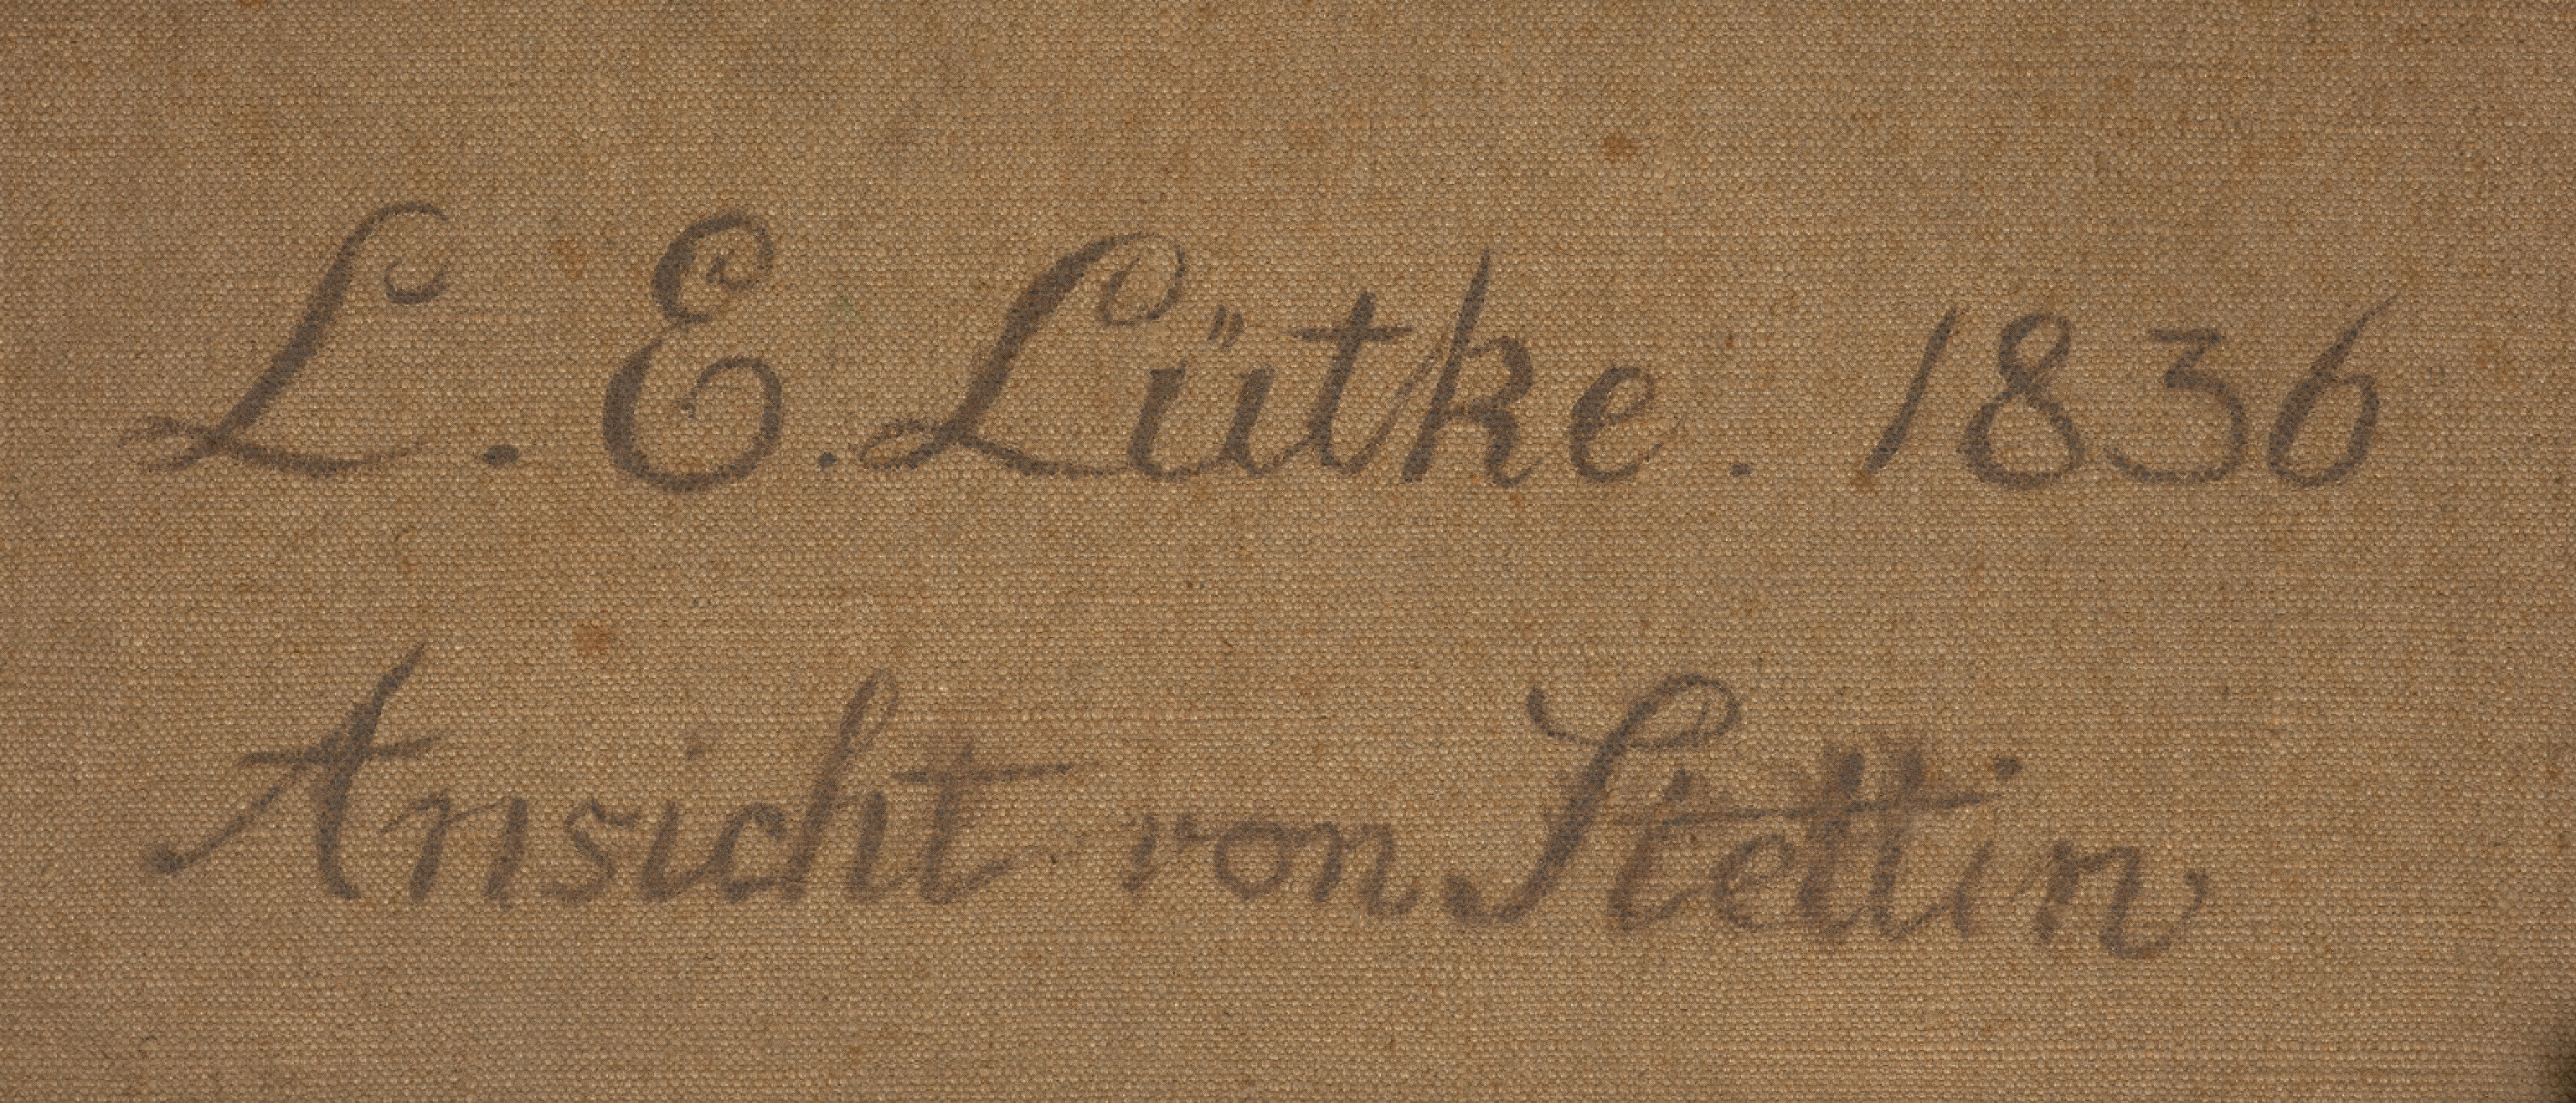 L. E. Lütke. 1836
Ansicht von Stettin